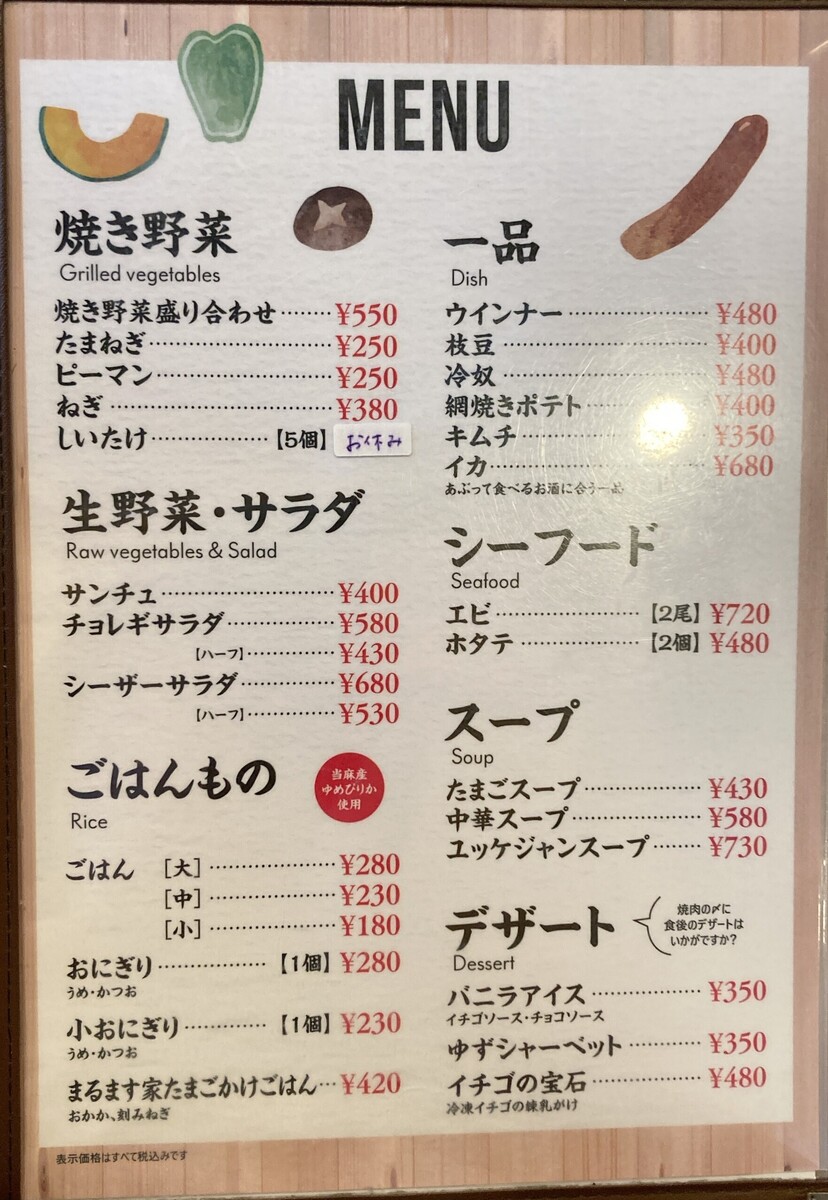 MENU
焼き野菜
Grilled vegetables
焼き野菜盛り合わせ……¥550
たまねぎ……¥250
ピーマン……¥250
ねぎ……¥380
しいたけ……【5個】 お休み
生野菜・サラダ
Raw vegetables & Salad
サンチュ……¥400
チョレギサラダ……¥580
【ハーフ】……¥430
シーザーサラダ……¥680
【ハーフ】……¥530
ごはんもの
Rice
当麻産
ゆめぴりか
使用
ごはん [大]……¥280
[中]……¥230
[小]……¥180
おにぎり……【1個】¥280
うめ・かつお
小おにぎり……【1個】¥230
うめ・かつお
まるます家たまごかけごはん…¥420
おかか、刻みねぎ
一品
Dish
ウインナー……¥480
枝豆……¥400
冷奴……¥480
網焼きポテト……¥400
キムチ……¥350
イカ……¥680
あぶって食べるお酒に合う一品
シーフード
Seafood
エビ……【2尾】¥720
ホタテ……【2個】¥480
スープ
Soup
たまごスープ……¥430
中華スープ……¥580
ユッケジャンスープ……¥730
デザート
Dessert
焼肉の〆に
食後のデザートは
いかがですか?
バニラアイス……¥350
イチゴソース・チョコソース
ゆずシャーベット……¥350
イチゴの宝石……¥480
冷凍イチゴの練乳がけ
表示価格はすべて税込みです